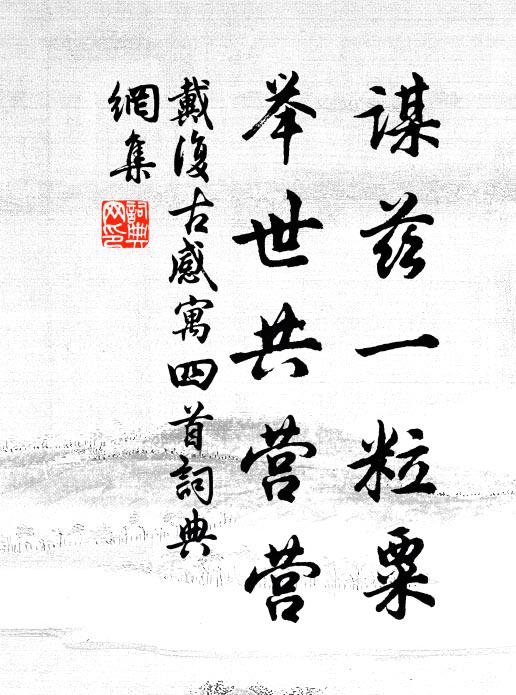 谋兹一粒粟
举世共营营
戴復古感寓四首詞典
網集
詞典
网印